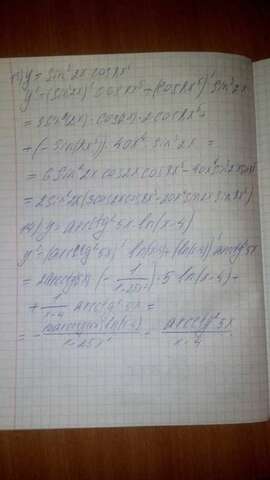 y = sin³2x cos8x⁵
y' = (sin³2x)' cos8x⁵ + (cos8x⁵)' sin³2x
= 3sin²(2x) · cos2x · 2 cos8x⁵ +
+ (- sin(8x⁵)) · 40x⁴ · sin³2x =
= 6 sin²2x cos2x cos8x⁵ - 40x⁴ sin³2x
= 2sin²2x(3cos2x cos8x⁵ - 20x⁴ sin2x sin8x⁵)
y = arcctg²5x · ln(x-4)
y' = (arcctg²5x)' ln(x-4) + (ln(x-4))' arcctg²5x
= 2arcctg5x · (- 1/1+25x²) · 5 · ln(x-4) +
+ 1/x-4 arcctg²5x =
= - ln(x-4)/1+25x² arcctg²5x/x-4